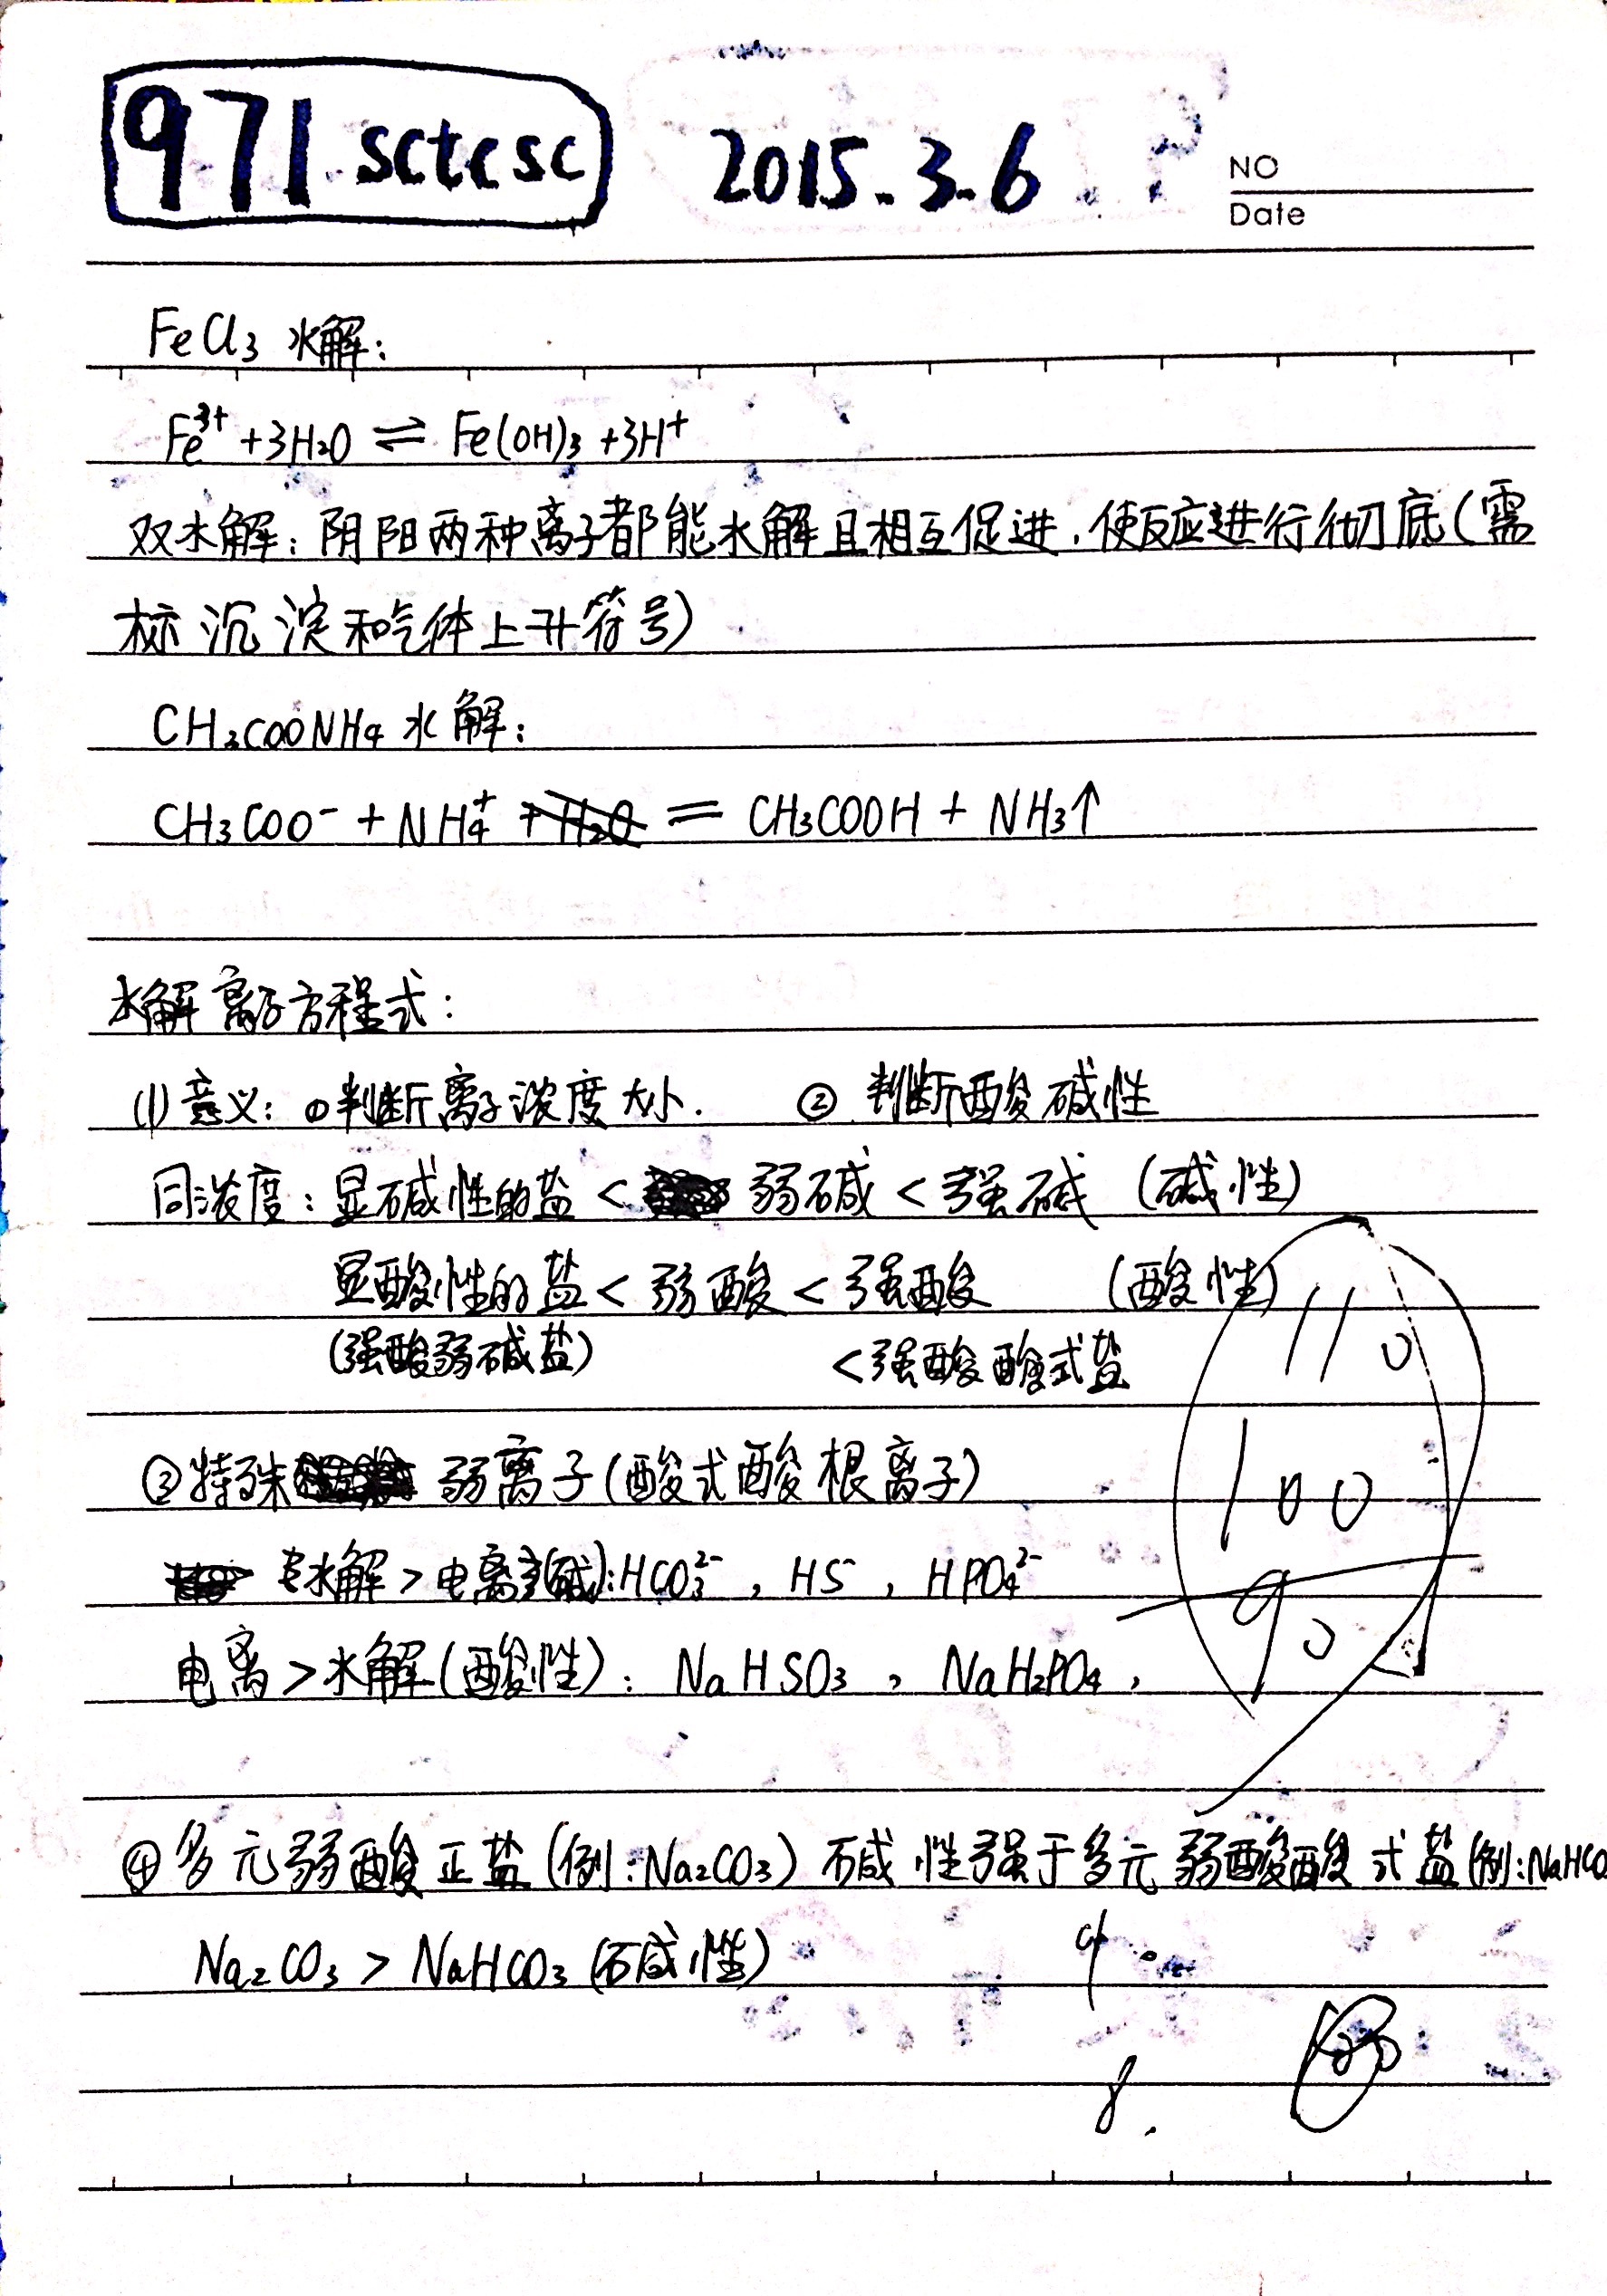 971.sctcsc 2015.3.6
NO
Date
FeCl3 水解:
Fe³⁺+3H2O ⇌ Fe(OH)3+3H⁺
双水解：阴阳两种离子都能水解且相互促进，使反应进行彻底(需
标沉淀和气体上升符号)
CH3COONH4 水解:
CH3COO⁻+NH4⁺ +H2O = CH3COOH+NH3↑
水解离子方程式:
(1)意义: ①判断离子浓度大小. ②判断酸碱性
同浓度: 显碱性的盐< 弱碱<强碱 (碱性)
显酸性的盐<弱酸<强酸 (酸性)
(强酸弱碱盐) <强酸酸式盐
11.0
100
③特殊 弱离子(酸式酸根离子)
水解>电离(碱):HCO3²⁻, HS⁻, HPO4²⁻
90
电离>水解(酸性): NaHSO3, NaH2PO4,
④多元弱酸正盐(例:Na2CO3)碱性强于多元弱酸酸式盐(例:NaHCO
Na2CO3>NaHCO3(碱性)
9.
8.